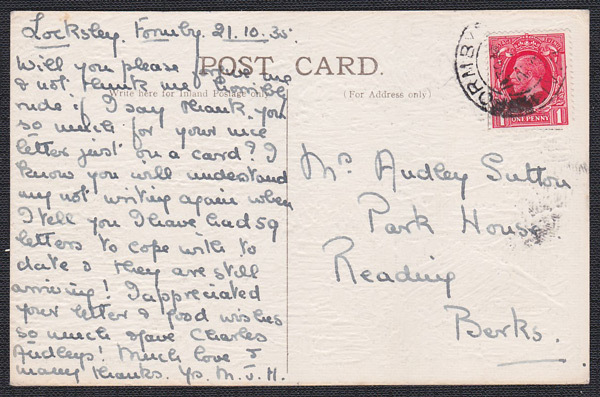 Locksley. Formby. 21.10.35.
Will you please forgive me
& not think me horribly
rude if I say thank you
so much for your nice
letter just on a card? I
know you will understand
my not writing again when
I tell you I have had 59
letters to cope with to
date & they are still
arriving! I appreciated
your letter & good wishes
so much & have Charles
Audleys! Much love &
many thanks. Ys. M.J.H.
POST CARD.
Write here for Inland Postage only
(For Address only)
FORMBY
ONE PENNY
1 1
Mrs Audley Sutton
Park House
Reading
Berks.